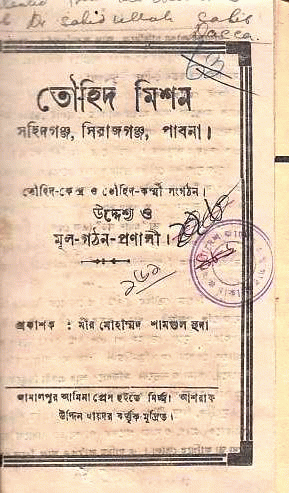 Dr Sahidullah Sahib
Dacca
তৌহিদ মিশন
সহিদগঞ্জ, সিরাজগঞ্জ, পাবনা।
তৌহিদ-কেন্দ্র ও তৌহিদ-কর্ম্মী সংগঠন।
উদ্দেশ্য ও
মূল-গঠন-প্রণালী।
প্রকাশক : মীর মোহাম্মদ শামসুল হুদা।
জামালপুর আমিনা প্রেস হইতে মির্জ্জা আশরাফ
উদ্দিন হায়দর কর্ত্তৃক মুদ্রিত।